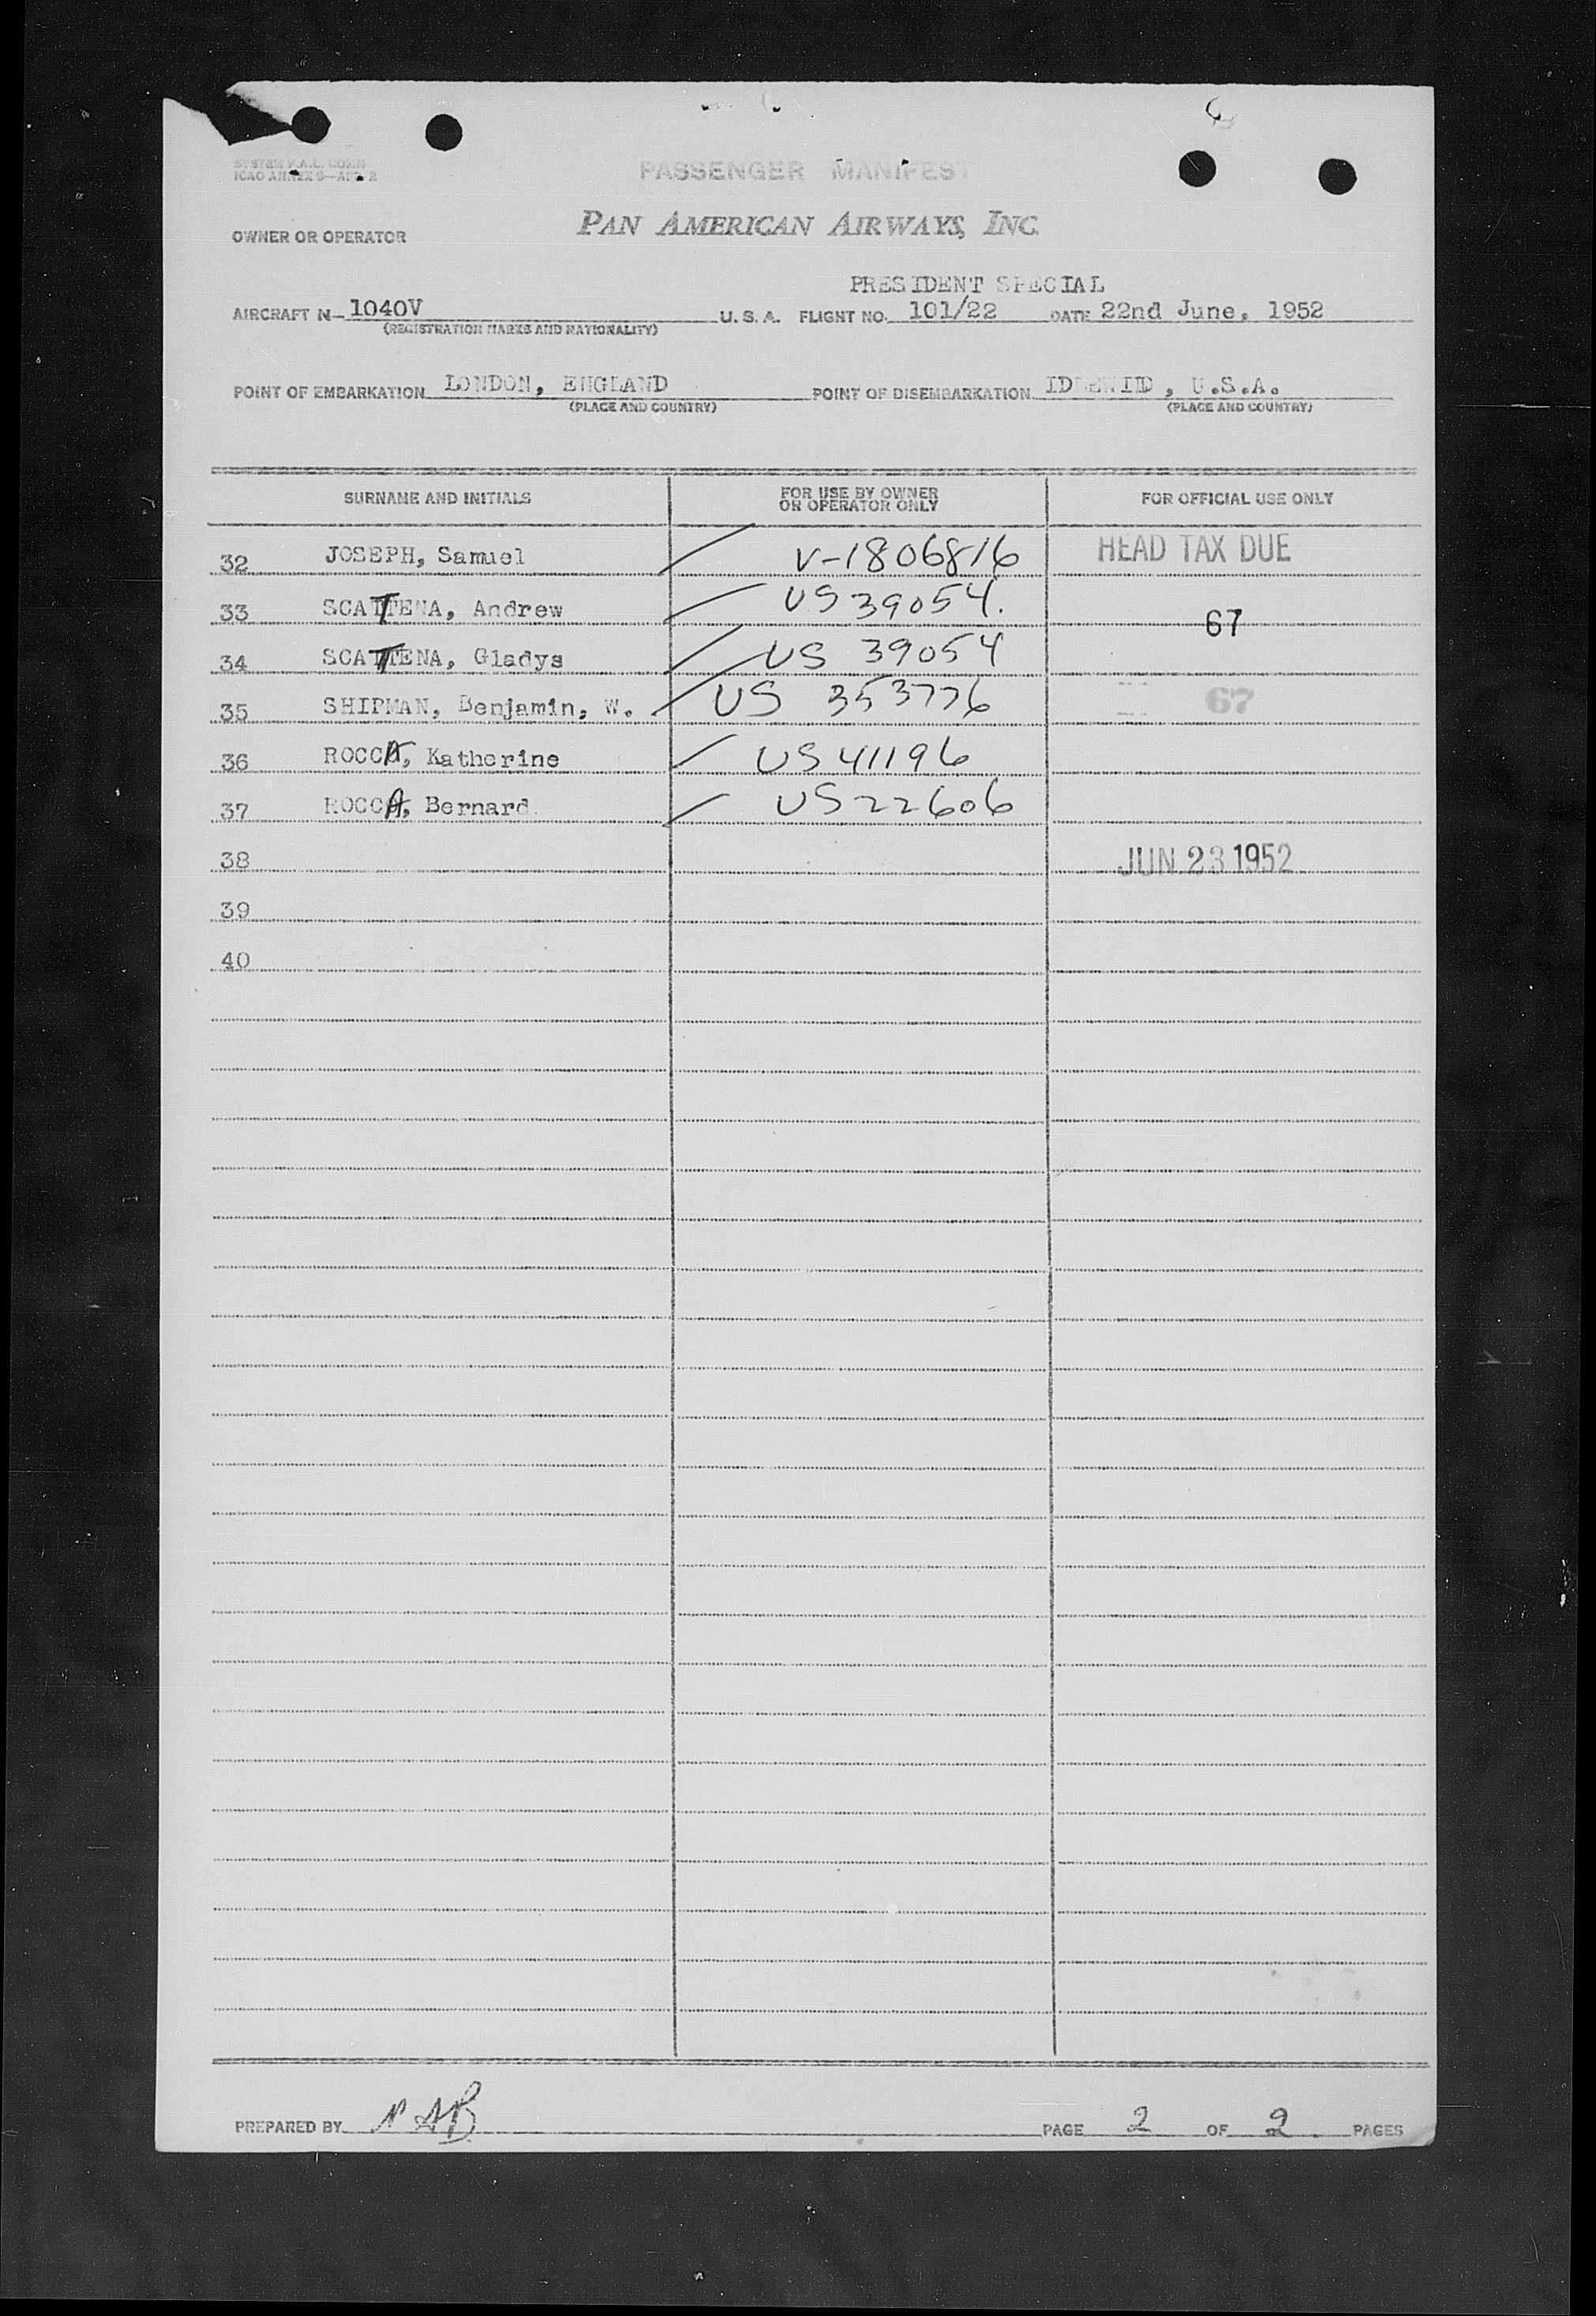 SYSTEM F.A.L. COMM
ICAO ANNEX 9—APP. 2
PASSENGER MANIFEST
OWNER OR OPERATOR PAN AMERICAN AIRWAYS, INC.
PRESIDENT SPECIAL
AIRCRAFT N- 1040V U. S. A. FLIGHT NO. 101/22 DATE 22nd June, 1952
(REGISTRATION MARKS AND NATIONALITY)
POINT OF EMBARKATION LONDON, ENGLAND POINT OF DISEMBARKATION IDLEWILD, U.S.A.
(PLACE AND COUNTRY) (PLACE AND COUNTRY)
SURNAME AND INITIALS FOR USE BY OWNER OR OPERATOR ONLY FOR OFFICIAL USE ONLY
32 JOSEPH, Samuel V-1806816 HEAD TAX DUE
33 SCATTENA, Andrew US 39054. 67
34 SCATTENA, Gladys US 39054
35 SHIPMAN, Benjamin, W. US 353776 67
36 ROCCA, Katherine US 41196
37 ROCCA, Bernard. US 22606
38 JUN 23 1952
39
40
PREPARED BY PAGE 2 OF 2 PAGES